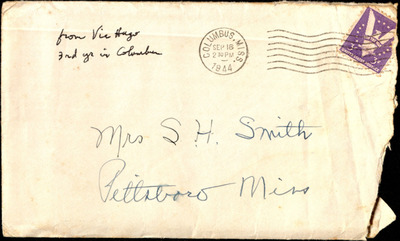 from Vic Hugo
3rd yr in Columbus
COLUMBUS, MISS.
SEP 18
2 30 PM
1944
Mrs S. H. Smith
Pittsboro Miss